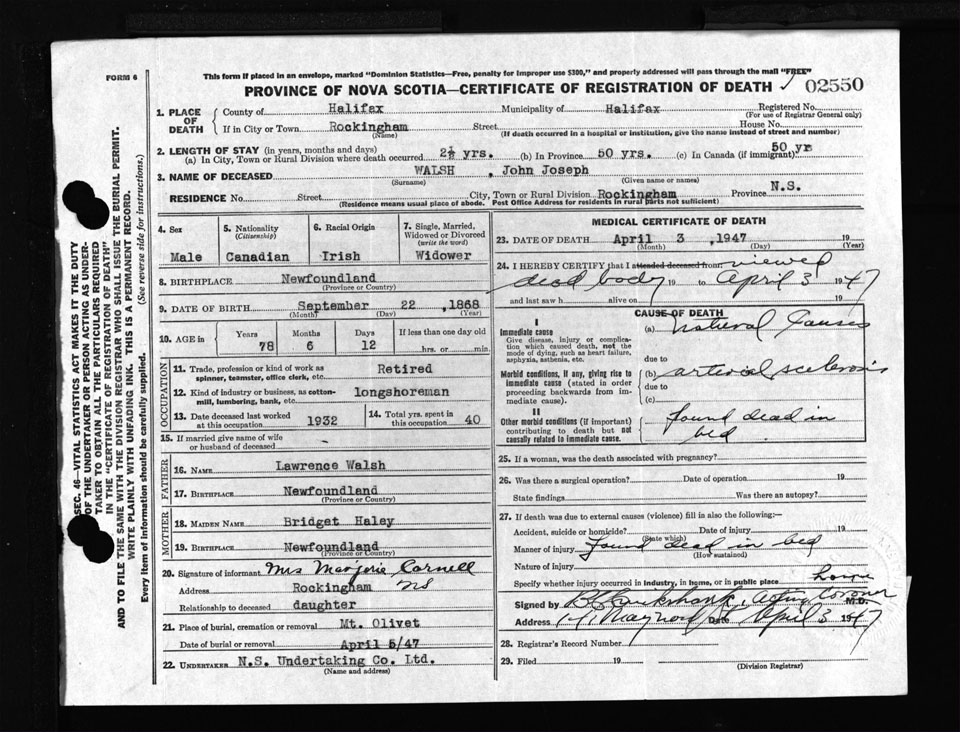 FORM 6
This form if placed in an envelope, marked "Dominion Statistics—Free, penalty for improper use $300," and properly addressed will pass through the mail "FREE"
PROVINCE OF NOVA SCOTIA—CERTIFICATE OF REGISTRATION OF DEATH 02550
SEC. 46—VITAL STATISTICS ACT MAKES IT THE DUTY
OF THE UNDERTAKER OR PERSON ACTING AS UNDER-
TAKER TO OBTAIN ALL THE PARTICULARS REQUIRED
IN THE "CERTIFICATE OF REGISTRATION OF DEATH"
AND TO FILE THE SAME WITH THE DIVISION REGISTRAR WHO SHALL ISSUE THE BURIAL PERMIT.
WRITE PLAINLY WITH UNFADING INK. THIS IS A PERMANENT RECORD.
Every item of Information should be carefully supplied. (See reverse side for instructions.)
1. PLACE OF DEATH
County of Halifax Municipality of Halifax Registered No.
(For use of Registrar General only)
If in City or Town Rockingham Street House No.
(Name) (If death occurred in a hospital or institution, give the name instead of street and number)
2. LENGTH OF STAY (in years, months and days)
(a) In City, Town or Rural Division where death occurred 2½ yrs. (b) In Province 50 yrs. (c) In Canada (if immigrant) 50 yr
3. NAME OF DECEASED WALSH , John Joseph
(Surname) (Given name or names)
RESIDENCE No. Street City, Town or Rural Division Rockingham Province N.S.
(Residence means usual place of abode. Post Office Address for residents in rural parts not sufficient)
4. Sex
Male
5. Nationality
(Citizenship)
Canadian
6. Racial Origin
Irish
7. Single, Married,
Widowed or Divorced
(write the word)
Widower
8. BIRTHPLACE Newfoundland
(Province or Country)
9. DATE OF BIRTH September 22 , 1868
(Month) (Day) (Year)
10. AGE in Years Months Days If less than one day old
78 6 12 hrs. or min.
OCCUPATION
11. Trade, profession or kind of work as
spinner, teamster, office clerk, etc. Retired
12. Kind of industry or business, as cotton-
mill, lumbering, bank, etc. longshoreman
13. Date deceased last worked
at this occupation 1932
14. Total yrs. spent in
this occupation 40
15. If married give name of wife
or husband of deceased -
FATHER
16. NAME Lawrence Walsh
17. BIRTHPLACE Newfoundland
(Province or Country)
MOTHER
18. MAIDEN NAME Bridget Haley
19. BIRTHPLACE Newfoundland
(Province or Country)
20. Signature of informant Mrs Marjorie Cornell
Address Rockingham NS
Relationship to deceased daughter
21. Place of burial, cremation or removal Mt. Olivet
Date of burial or removal April 5/47
22. UNDERTAKER N.S. Undertaking Co. Ltd.
(Name and address)
MEDICAL CERTIFICATE OF DEATH
23. DATE OF DEATH April 3 ,1947 19
(Month) (Day) (Year)
24. I HEREBY CERTIFY that I attended deceased from: viewed
dead body 19 to April 3 1947
and last saw h alive on 19
CAUSE OF DEATH
I
Immediate cause
Give disease, injury or complica-
tion which caused death, not the
mode of dying, such as heart failure,
asphyxia, asthenia, etc.
(a) Natural Causes
due to
Morbid conditions, if any, giving rise to
immediate cause (stated in order
proceeding backwards from im-
mediate cause).
(b) arterial sclerosis
due to
(c)
II
Other morbid conditions (if important)
contributing to death but not
causally related to immediate cause.
found dead in
bed
25. If a woman, was the death associated with pregnancy?
26. Was there a surgical operation? Date of operation 19
State findings Was there an autopsy?
27. If death was due to external causes (violence) fill in also the following:—
Accident, suicide or homicide? Date of injury 19
(State which)
Manner of injury found dead in bed
(How sustained)
Nature of injury
Specify whether injury occurred in industry, in home, or in public place home
Signed by Acting Coroner M.D.
Address Date April 3 1947
28. Registrar's Record Number
29. Filed 19
(Division Registrar)